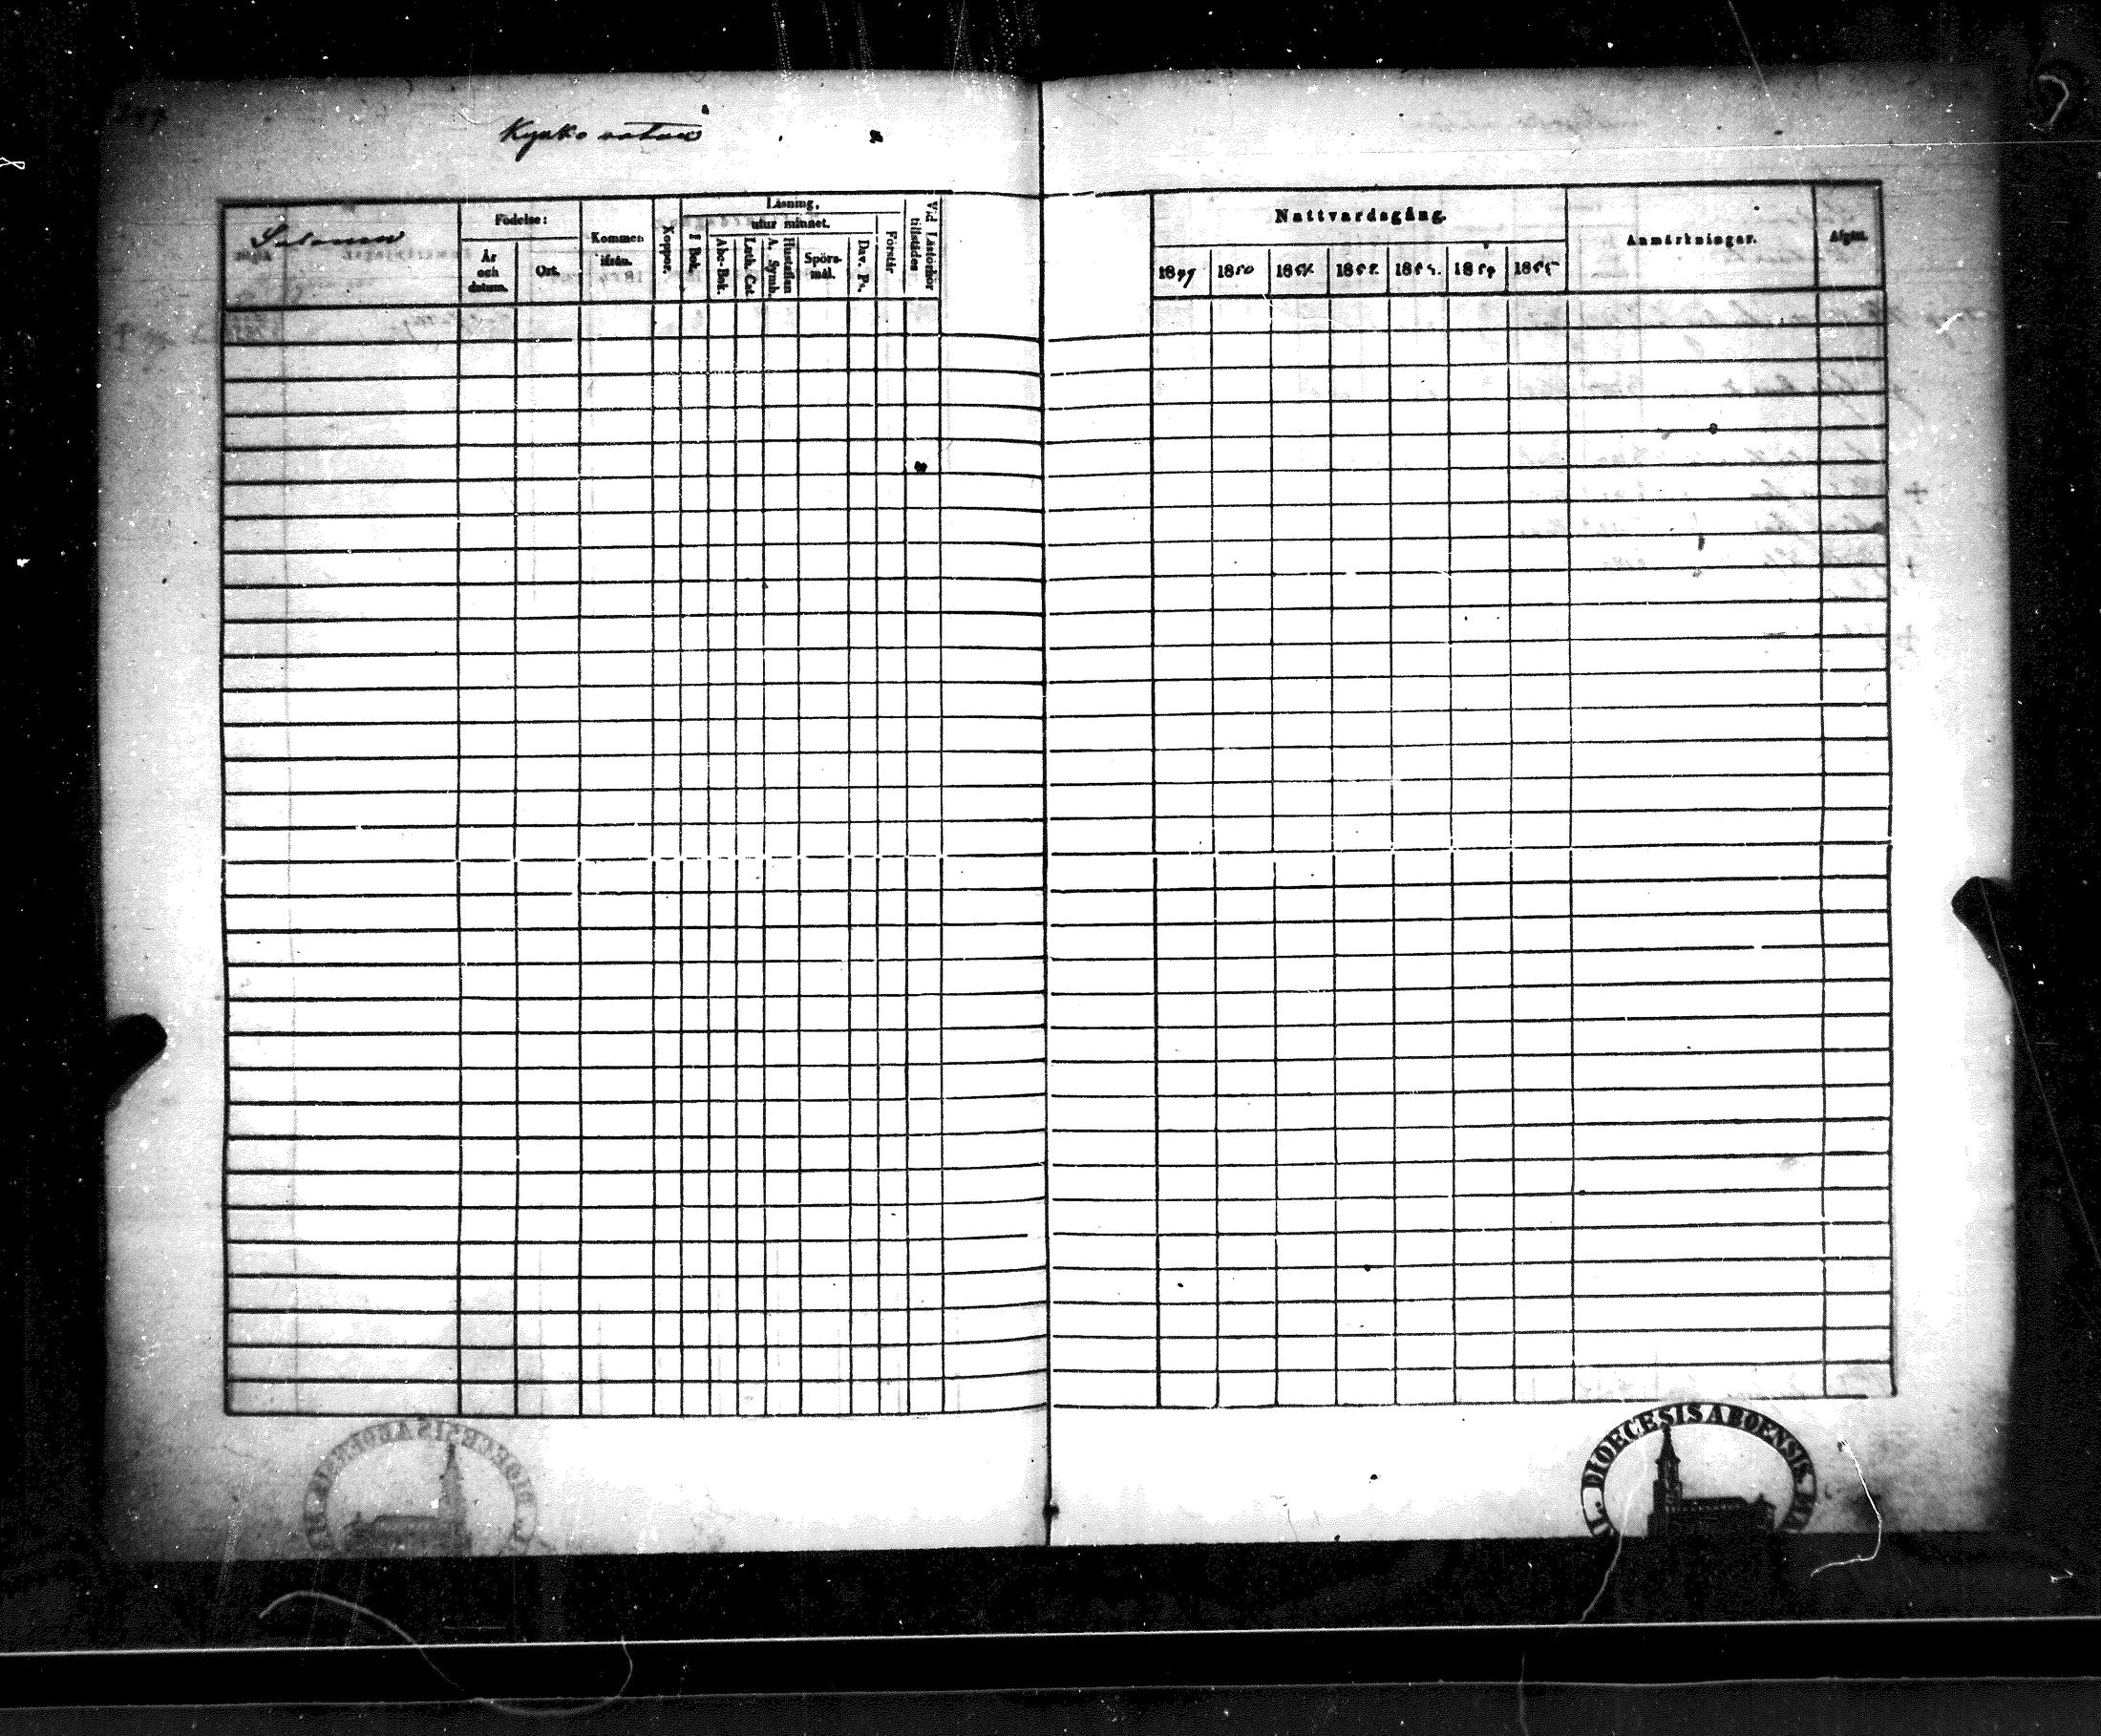 Salonen
Födelse:
År
och
datum.
Ort.
Kommen
ifrån.
Koppor.
Läsning,
utur minnet.
I Bok.
Abc-Bok.
Luth. Cat.
Hustaflan
A. Symb.
Spörs-
mål.
Dav. Ps.
Förstår
Vid Läsförhör
tillstädes
Nattvardsgång.
1849 1850 1851. 1852. 1853. 1854 1855
Anmärkningar.
Afgått.
DIOECESIS ABOENSIS